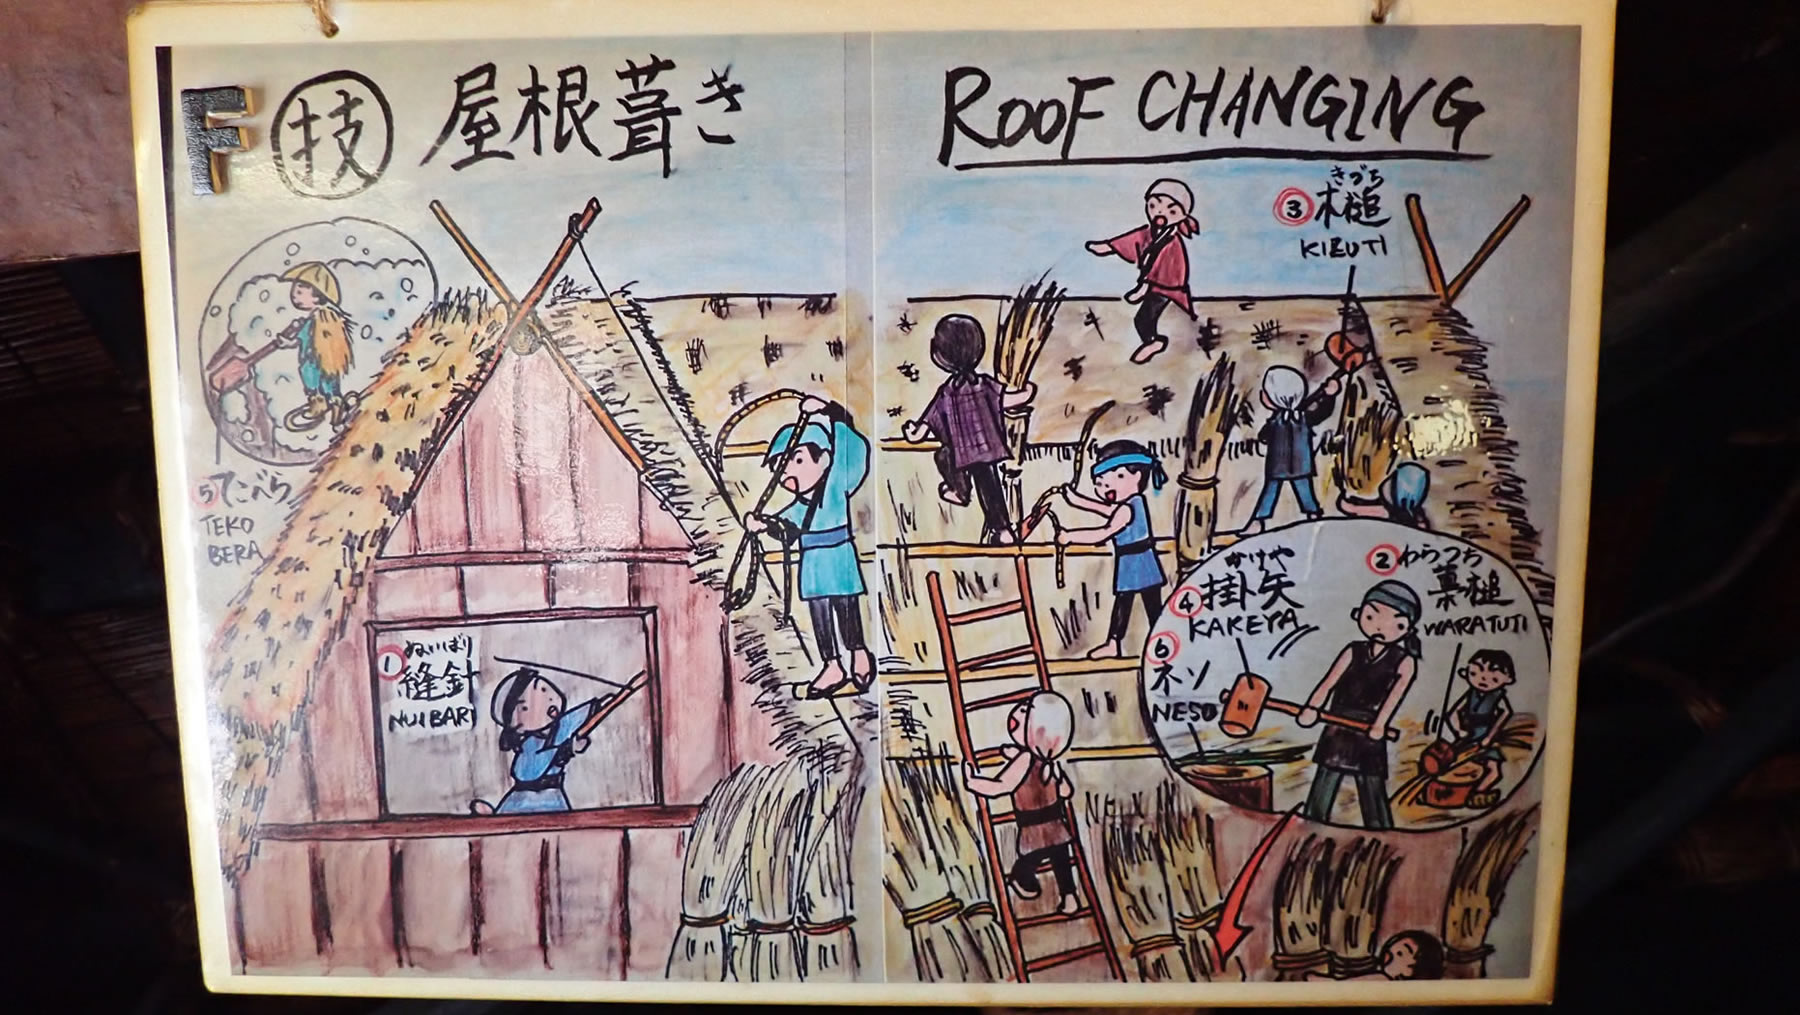 F 技 屋根葺き ROOF CHANGING
きづち
③ 木槌
KIZUTI
5 てこべら
TEKO
BERA
ぬいばり
① 縫針
NUIBARI
かけや
④ 掛矢
KAKEYA
② わらつち
藁槌
WARATUTI
⑥
ネソ
NESO